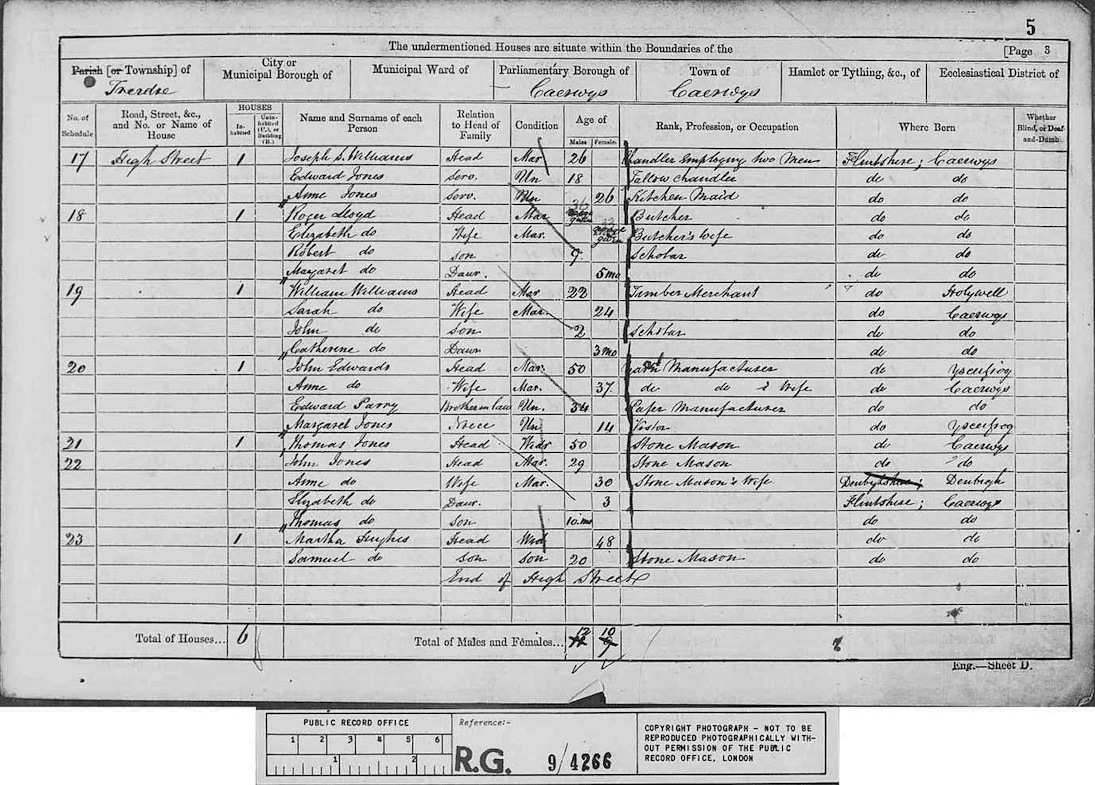 5
The undermentioned Houses are situate within the Boundaries of the
[Page 3
Parish [or Township] of
City or Municipal Borough of
Municipal Ward of
Parliamentary Borough of
Town of
Hamlet or Tything, &c., of
Ecclesiastical District of
Trerdre
Caerwys
Caerwys
No. of Schedule
Road, Street, &c., and No. or Name of House
HOUSES
Inhabited
Uninhabited (U.), or Building (B.)
Name and Surname of each Person
Relation to Head of Family
Condition
Age of
Males
Females
Rank, Profession, or Occupation
Where Born
Whether Blind, or Deaf-and-Dumb
17 High Street 1 Joseph S. Williams Head Mar 26 Chandler Employing two Men Flintshire; Caerwys
Edward Jones Serv. Un 18 Tallow Chandler do do
Anne Jones Serv. Un 26 Kitchen Maid do do
18 1 Roger Lloyd Head Mar 36 Butcher do do
Elizabeth do Wife Mar. 33 Butcher's Wife do do
Robert do Son 9 Scholar do do
Margaret do Daur. 5 mo do do
19 1 William Williams Head Mar 22 Timber Merchant do Holywell
Sarah do Wife Mar. 24 do Caerwys
John do Son 2 Scholar do do
Catherine do Daur 3 mo do do
20 1 John Edwards Head Mar. 50 Manufacturer do Ysceifiog
Anne do Wife Mar. 37 do do s Wife do Caerwys
Edward Parry Brother in law Un. 34 Paper Manufacturer do do
Margaret Jones Niece Un 14 Visitor do Ysceifiog
21 1 Thomas Jones Head Widr 50 Stone Mason do Caerwys
22 John Jones Head Mar. 29 Stone Mason do do
Anne do Wife Mar. 30 Stone Mason's Wife Denbighshire; Denbigh
Elizabeth do Daur. 3 Flintshire; Caerwys
Thomas do Son 10 mo do do
23 1 Martha Hughes Head Wid 48 do do
Samuel do Son Son 20 Stone Mason do do
End of High Street
Total of Houses... 6
Total of Males and Females... 12 10
Eng.—Sheet D.
PUBLIC RECORD OFFICE
1 2 3 4 5 6
1 2
Reference:-
R.G. 9/4266
COPYRIGHT PHOTOGRAPH - NOT TO BE
REPRODUCED PHOTOGRAPHICALLY WITH-
OUT PERMISSION OF THE PUBLIC
RECORD OFFICE, LONDON